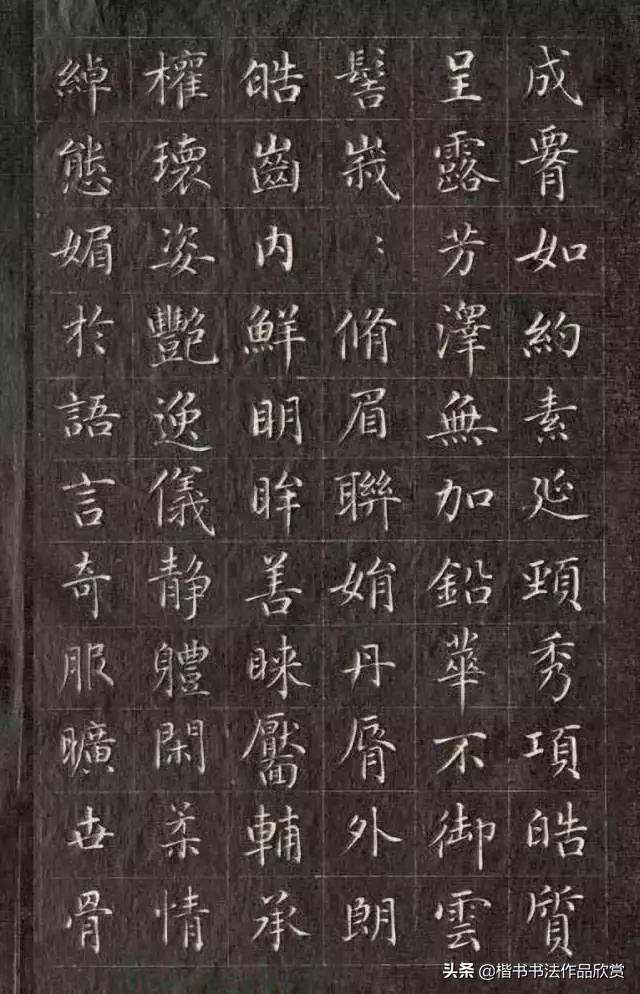 成如約素延頸秀項皓質
呈露芳澤無加鉛華不御雲
髻峩：脩眉聯娟丹脣外朗
皓齒内鮮明眸善睞靨輔承
權瓌姿豔逸儀静軆閑柔情
綽態媚於語言奇服曠世骨
头条 @楷书书法作品欣赏